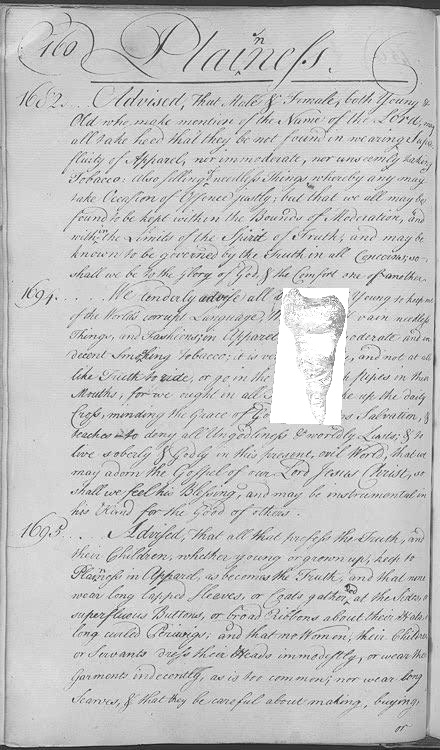 160 Plainness.
1682... Advised, That Male & Female, both Young &
Old who make mention of the Name of the Lord, may
all take heed that they be not found in wearing Super
fluity of Apparel, nor immoderate, nor unseemly taking
Tobacco: Also selling needless Things whereby any may
take Occasion of Offence justly; but that we all may be
found to be kept within the Bounds of Moderation, and
within the Limits of the Spirit of Truth; and may be
known to be governed by the Truth in all Concerns, so
shall we be to the Glory of God, & the Comfort one of another.
1694...... We tenderly advise all Young to keep out
of the World's corrupt Language, vain needless
Things, and Fashions, in Apparel and in
decent Smoking Tobacco; it is and not at all
like Truth to ride, or go in the pipes in their
Mouths; for we ought in all up the daily
Cross, minding the Grace of Salvation, &
teaches to deny all Ungodliness & worldly Lusts; & to
live soberly & Godly in this present, evil World, that we
may adorn the Gospel of our Lord Jesus Christ, so
shall we feel his Blessing, and may be instrumental in
his Hand for the Good of others.
1695... Advised, That all that profess the Truth, and
their Children, whether young or grown up, keep to
Plainness in Apparel, as becomes the Truth, and that none
wear long lapped Sleeves, or Coats gathered at the Sides, or
superfluous Buttons, or broad Ribbons about their Hats, or
long curled Periwigs; and that no Women, their Children
or Servants dress their Heads immodestly, or wear their
Garments indecently, as is too common; nor wear long
Scarves, & that they be careful about making, buying,
or